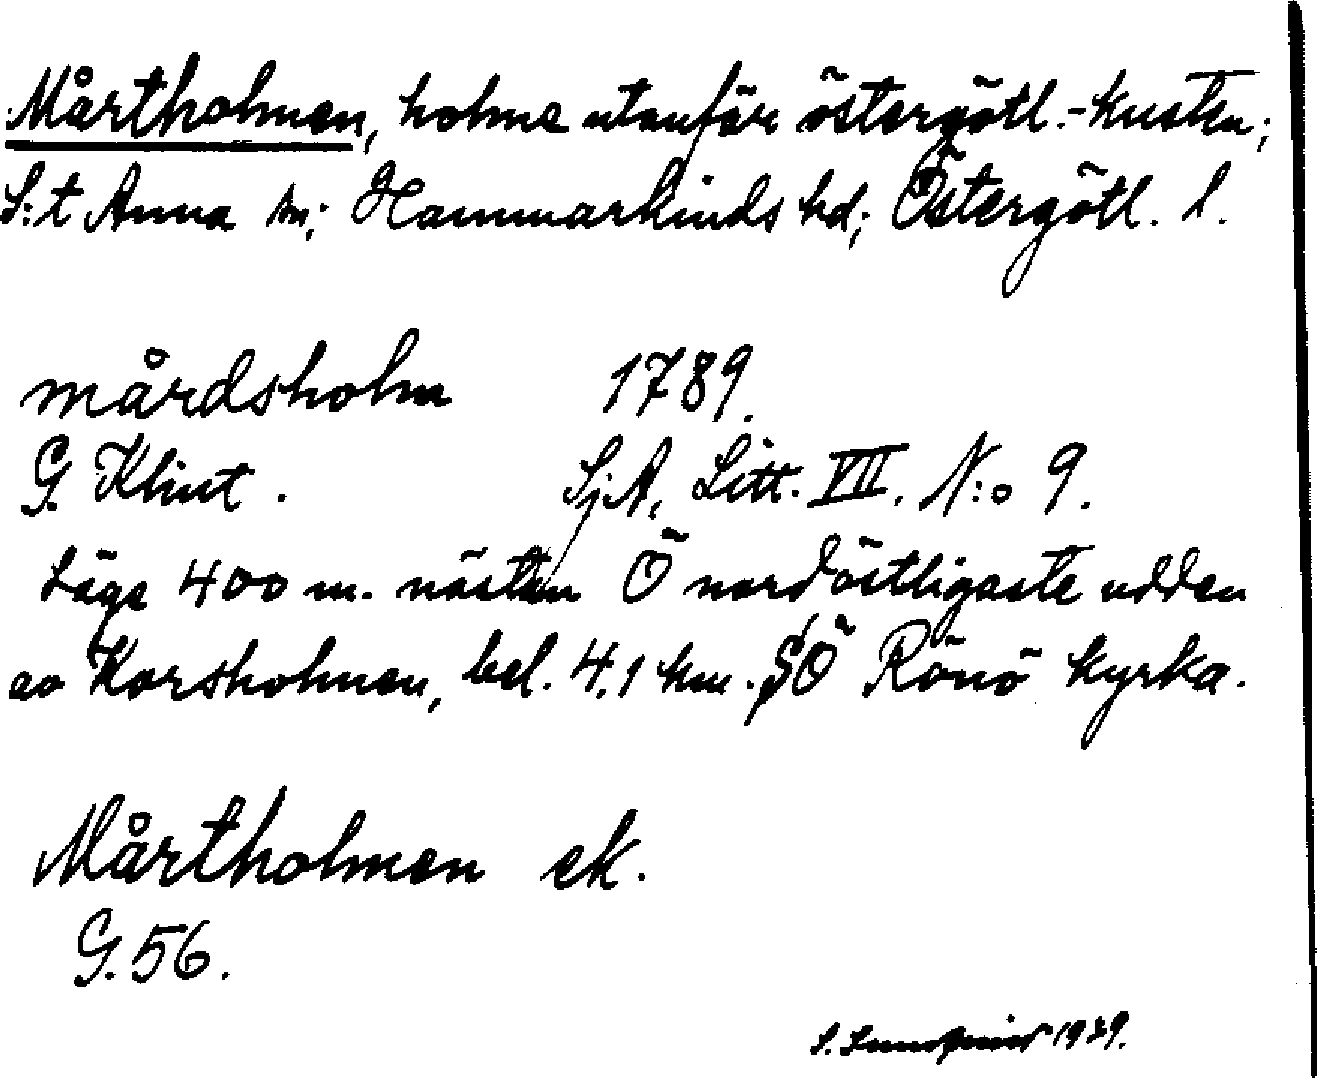 Mårtholmen, holme utanför östergötl.-kusten;
S:t Anna sn; Hammarkinds hd; Östergötl. l.
mårdsholm 1789.
G. Klint. SjA, Litt. VII. N:o 9.
Läge 400 m. nästan Ö nordöstligaste udden
av Korsholmen, bel. 4,1 km. SÖ Rönö kyrka.
Mårtholmen ek.
G. 56.
S. 1939.